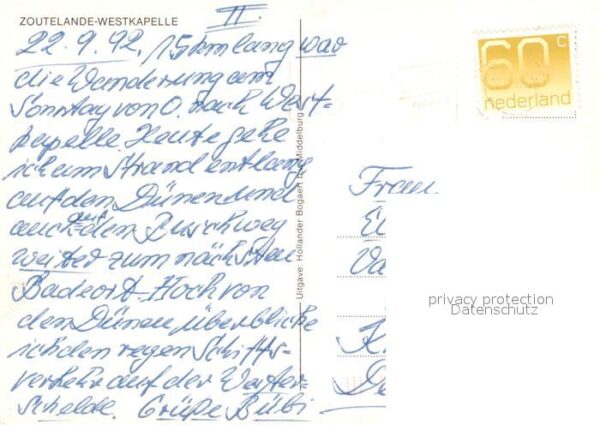 ZOUTELANDE-WESTKAPELLE
II.
22.9.92, 15 km lang war
die Wanderung am
Sonntag von O. nach West-
kapelle. Heute gehe
ich am Strand entlang
auf den Dünen und
auch auf den Rückweg
weiter zum nächsten
Badeort. Hoch von
den Dünen überblicke
ich den regen Schiffs-
verkehr auf der Wester-
schelde. Grüße Bübi
Uitgave: Hollander Bogaert Middelburg
60 c
nederland
Frau
privacy protection
Datenschutz